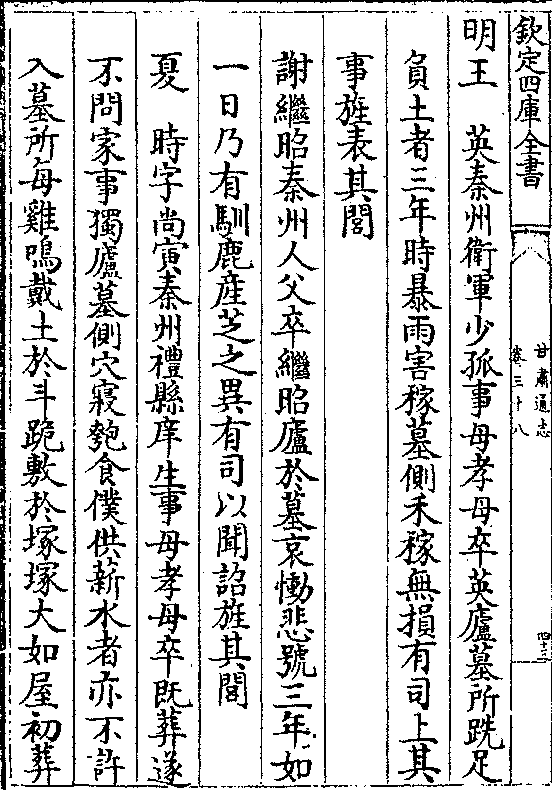 欽定四庫全書
甘肅通志
卷三十八
四十三
明王 英秦州衛軍少孤事母孝母卒英廬墓所跣足
負土者三年時暴雨害稼墓側禾稼無損有司上其
事旌表其閭
謝繼昭秦州人父卒繼昭廬於墓哀慟悲號三年如
一日乃有馴鹿産芝之異有司以聞詔旌其閭
夏 時字尚寅秦州禮縣庠生事母孝母卒既葬遂
不問家事獨廬墓側穴寢匏食僕供薪水者亦不許
入墓所每雞鳴戴土於斗跪敷於塚塚大如屋初葬